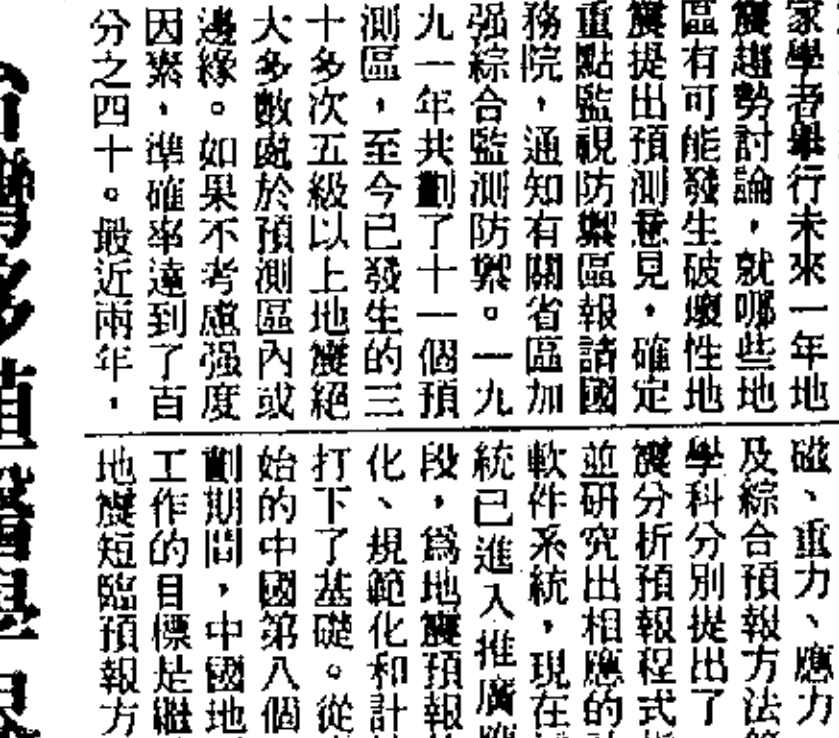 家學者舉行未來一年地
震趨勢討論，就哪些地
區有可能發生破壞性地
震提出預測意見，確定
重點監視防禦區報請國
務院，通知有關省區加
强綜合監測防禦。一九
九一年共劃了十一個預
測區，至今已發生的三
十多次五級以上地震絕
大多數處於預測區內或
邊緣。如果不考慮强度
因素，準確率達到了百
分之四十。最近兩年，
磁、重力、應力
及綜合預報方法
學科分別提出了
震分析預報程式
並研究出相應的
軟件系統，現在
統已進入推廣應
段，爲地震預報
化、規範化和計
打下了基礎。從
始的中國第八個
劃期間，中國地
工作的目標是繼
地震短臨預報方